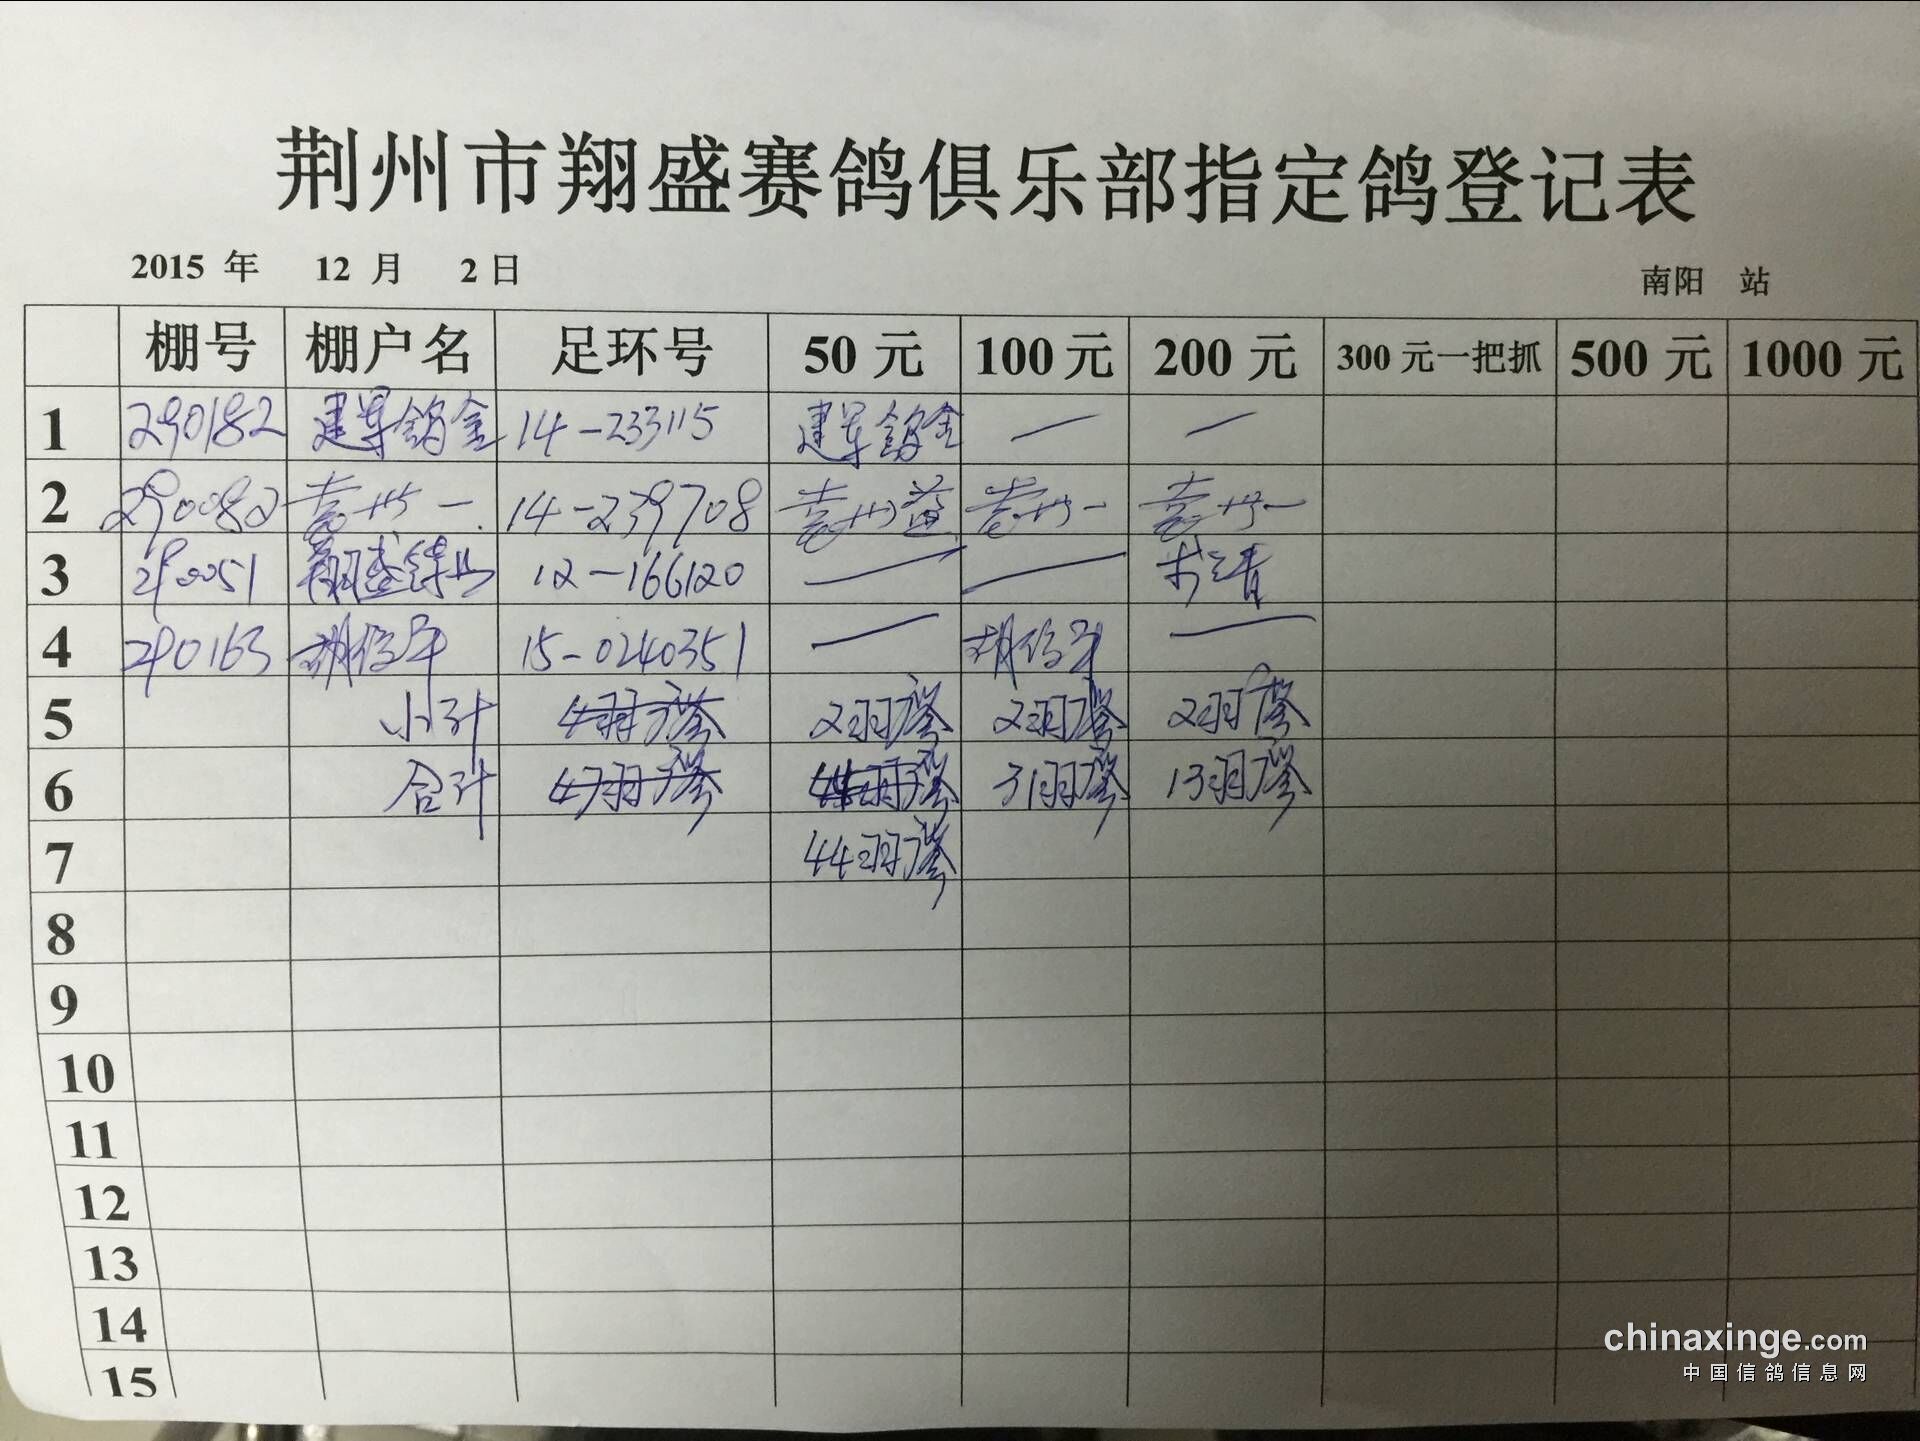 荆州市翔盛赛鸽俱乐部指定鸽登记表
2015 年 12 月 2 日 南阳 站
棚号 棚户名 足环号 50 元 100 元 200 元 300 元一把抓 500 元 1000 元
1 290182 建军鸽舍 14-233115 建军鸽舍 — —
2 290082 14-239708
3 290051 翔盛 12-166120 — —
4 290163 15-0240351 — —
5 小计 4羽 2羽 2羽 2羽
6 合计 47羽 31羽 13羽
7 44羽
8
9
10
11
12
13
14
15
chinaxinge.com
中国信鸽信息网